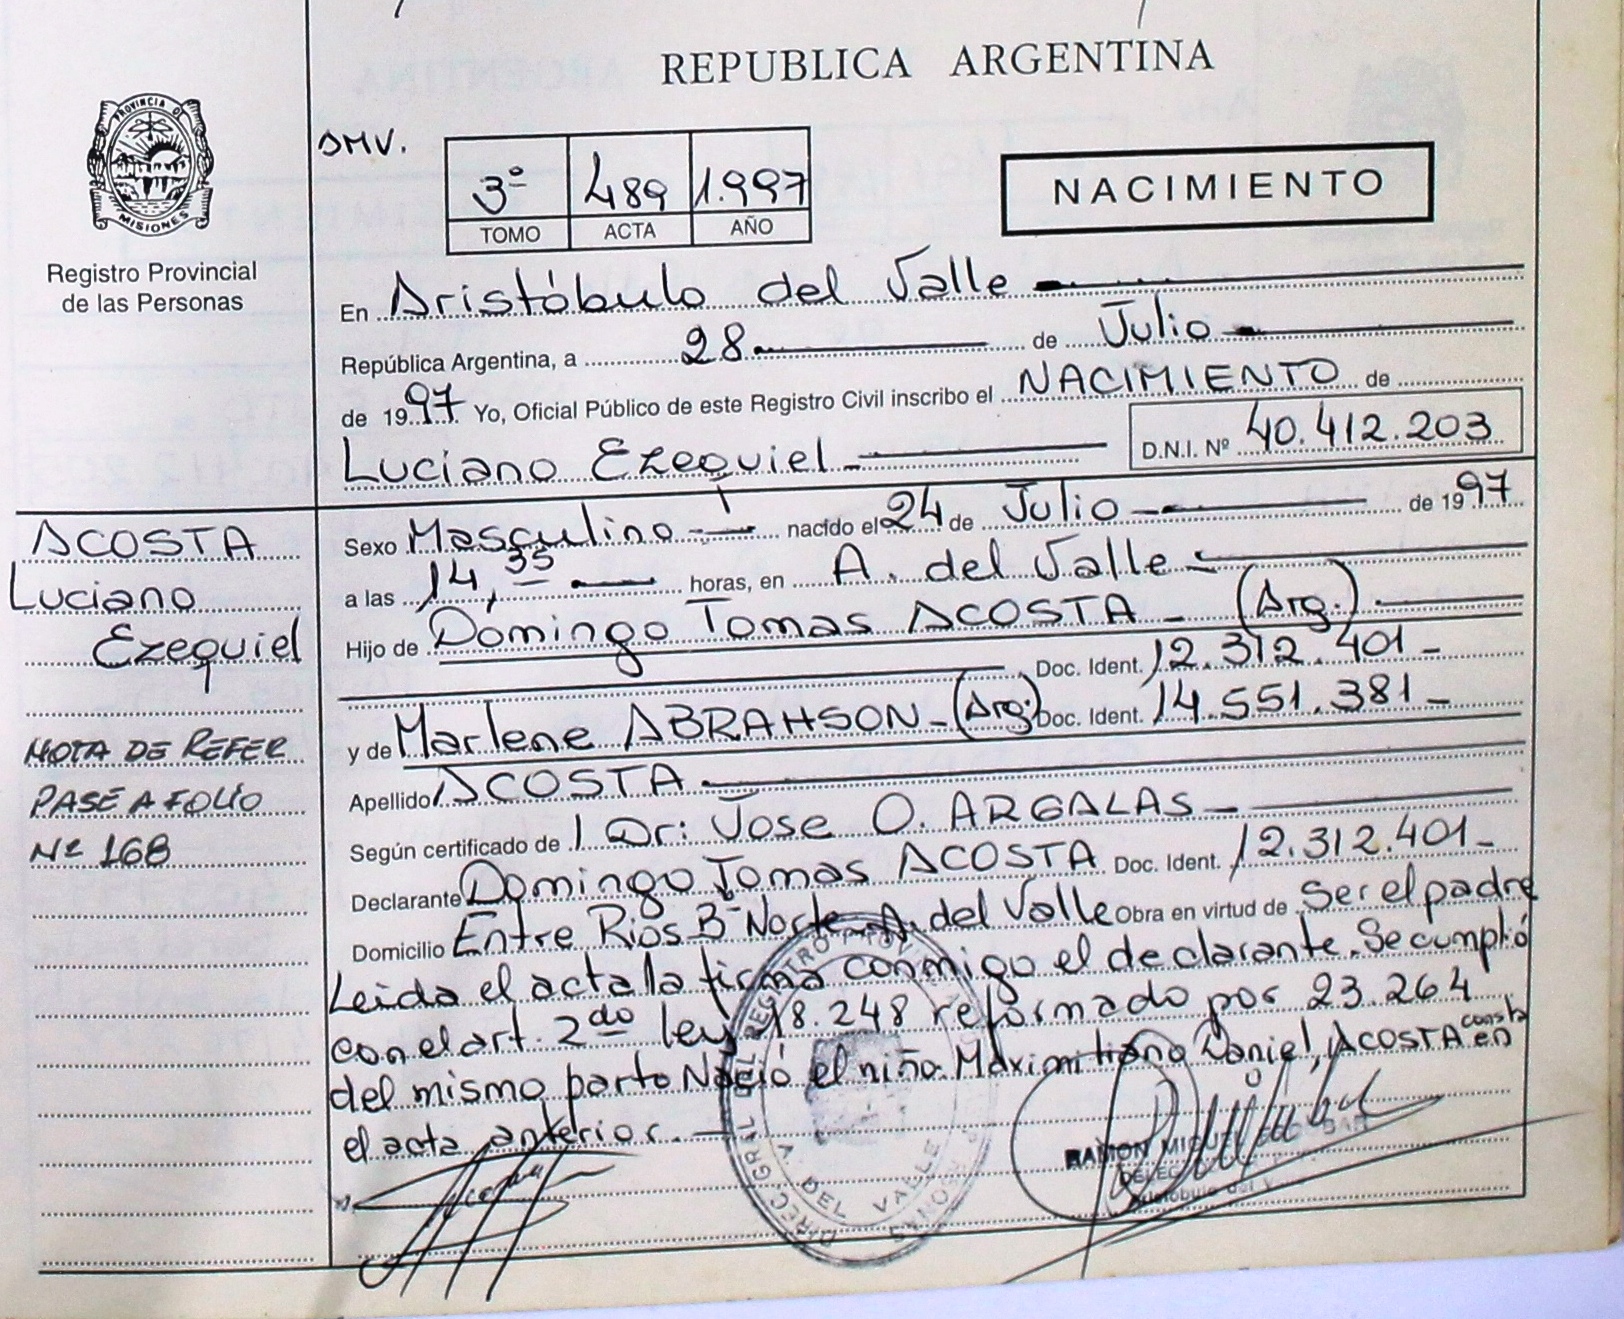 REPUBLICA ARGENTINA
PROVINCIA D
MISIONES
Registro Provincial
de las Personas
DMV.
3º 489 1.997
TOMO ACTA AÑO
NACIMIENTO
En Aristóbulo del Valle
República Argentina, a 28 de Julio
de 1997 Yo, Oficial Público de este Registro Civil inscribo el NACIMIENTO de
Luciano Ezequiel D.N.I. Nº 40.412.203
ACOSTA
Luciano
Ezequiel
NOTA DE REFER
PASE A FOLIO
Nº 168
Sexo Masculino nacido el 24 de Julio de 1997
a las 14,35 horas, en A. del Valle
Hijo de Domingo Tomas ACOSTA - (Arg.)
Doc. Ident. 12.312.401-
y de Marlene ABRAHSON - (Arg.) Doc. Ident. 14.551.381-
Apellido ACOSTA
Según certificado de Dr: Jose O. ARGALAS
Declarante Domingo Tomas ACOSTA Doc. Ident. 12.312.401-
Domicilio Entre Rios Bº Norte-A. del Valle Obra en virtud de Ser el padre
Leida el acta la firma conmigo el declarante. Se cumplió
con el art. 2do ley 18.248 reformado por 23.264
del mismo parto Nació el niño Maximiliano Daniel, ACOSTA consta en
el acta anterior.
DIREC. GRAL. DEL REGISTRO PROVINCIAL
A. DEL VALLE
RAMON MIGUEL